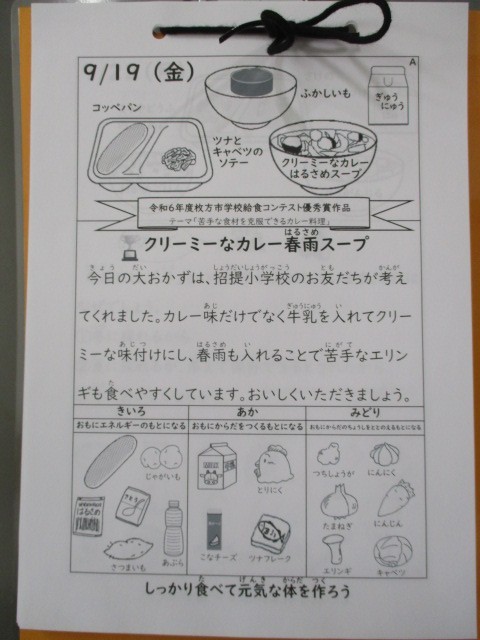 A
9/19（金）
コッペパン
ふかしいも
ぎゅうにゅう
ツナと
キャベツの
ソテー
クリーミーなカレー
はるさめスープ
令和6年度枚方市学校給食コンテスト優秀賞作品
テーマ「苦手な食材を克服できるカレー料理」
クリーミーなカレー春雨スープ
今日の大おかずは、招提小学校のお友だちが考え
てくれました。カレー味だけでなく牛乳を入れてクリー
ミーな味付けにし、春雨も入れることで苦手なエリン
ギも食べやすくしています。おいしくいただきましょう。
きいろ
あか
みどり
おもにエネルギーのもとになる
おもにからだをつくるもとになる
おもにからだのちょうしをととのえるもとになる
じゃがいも
とりにく
つちしょうが
にんにく
はるさめ
たまねぎ
にんじん
さつまいも
あぶら
こなチーズ
ツナフレーク
エリンギ
キャベツ
しっかり食べて元気な体を作ろう